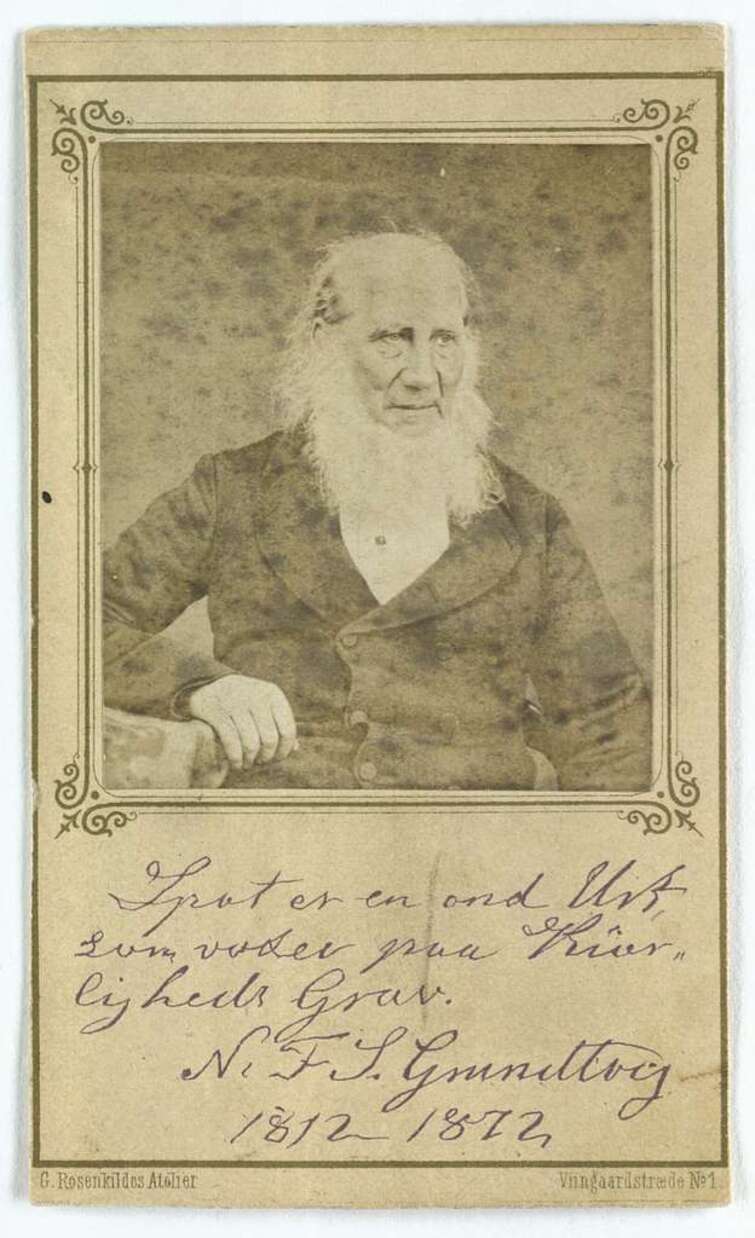 Spot er en ond Urt,
som voxer paa Kiær-
ligheds Grav.
N. F. S. Grundtvig
1812 1872
G. Rosenkildes Atelier
Viingaardstræde No 1.